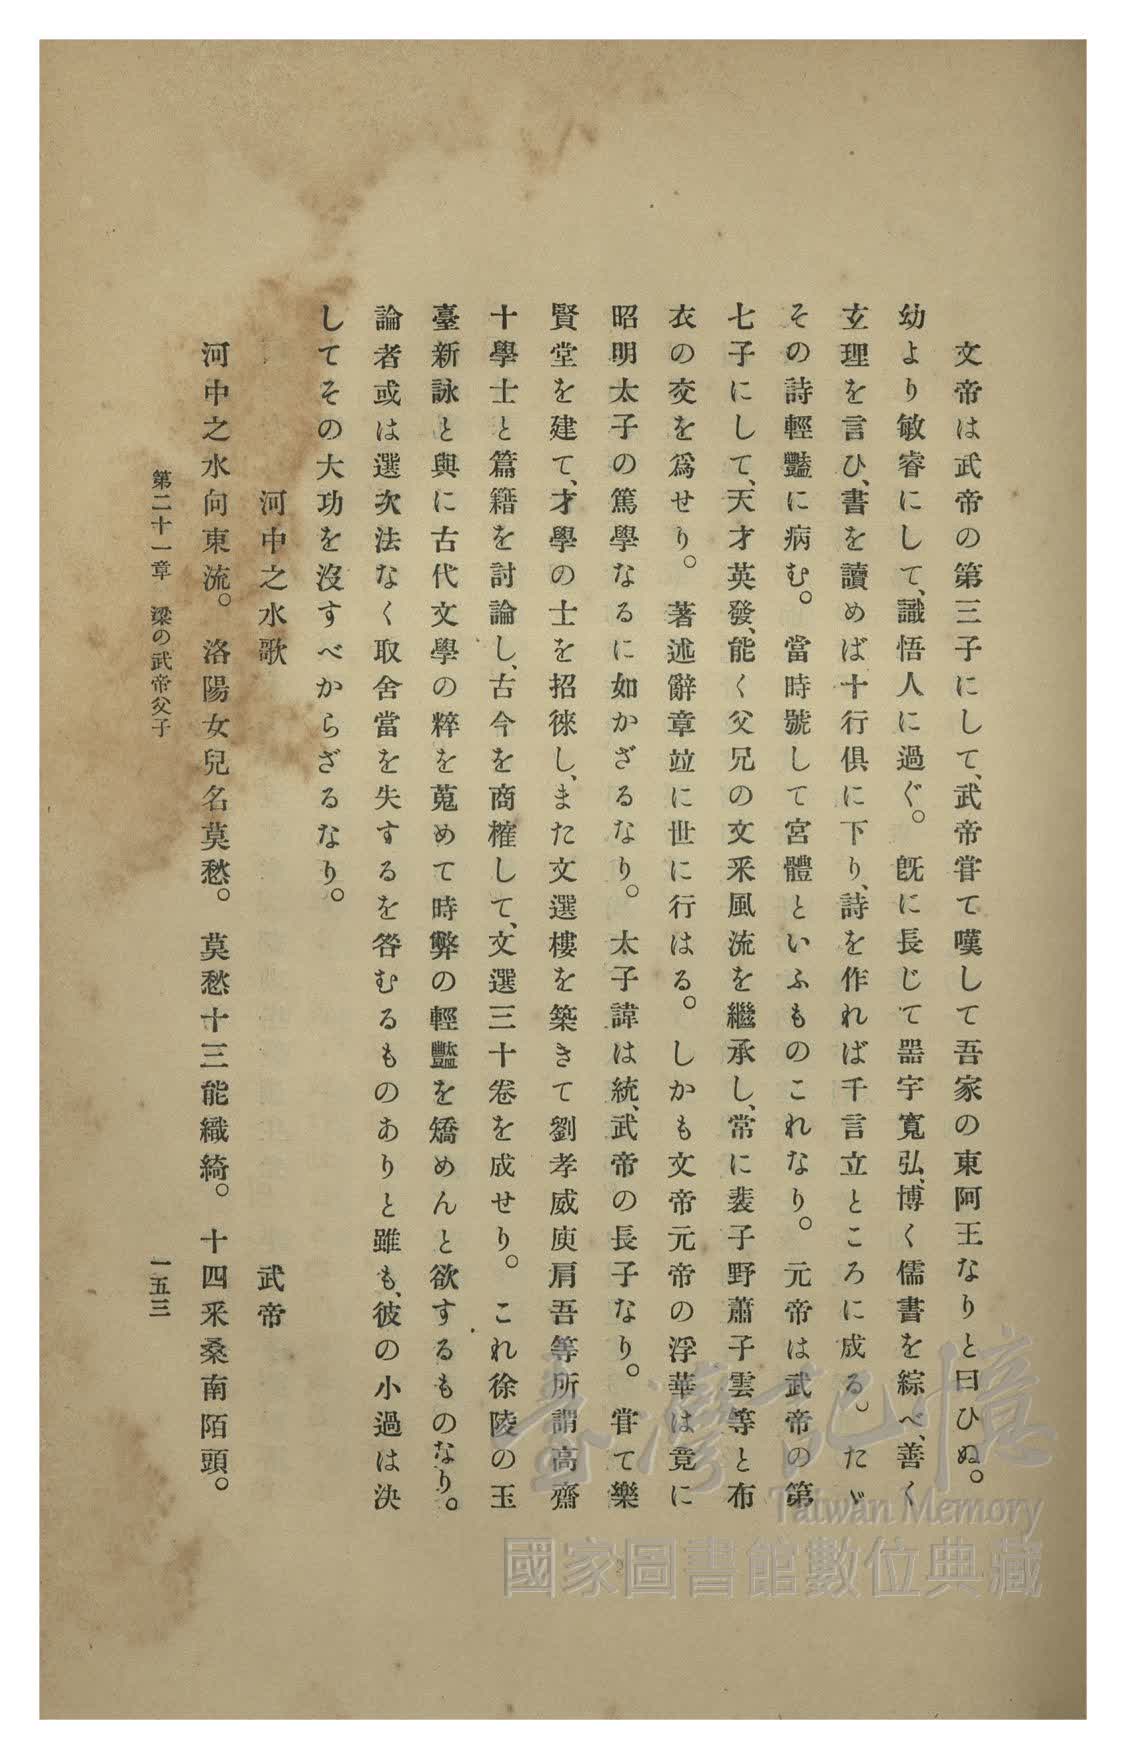 文帝は武帝の第三子にして、武帝甞て嘆して吾家の東阿王なりと曰ひぬ。
幼より敏睿にして、識悟人に過ぐ。既に長じて器宇寬弘、博く儒書を綜べ、善く
玄理を言ひ、書を讀めば十行俱に下り、詩を作れば千言立ところに成る。たゞ
その詩輕豔に病む。當時號して宮體といふものこれなり。元帝は武帝の第
七子にして、天才英發、能く父兄の文采風流を繼承し、常に裴子野蕭子雲等と布
衣の交を爲せり。著述辭章竝に世に行はる。しかも文帝元帝の浮華は竟に
昭明太子の篤學なるに如かざるなり。太子諱は統、武帝の長子なり。甞て樂
賢堂を建て、才學の士を招徠し、また文選樓を築きて劉孝威庾肩吾等所謂高齋
十學士と篇籍を討論し、古今を商榷して、文選三十卷を成せり。これ徐陵の玉
臺新詠と與に古代文學の粹を蒐めて時弊の輕豔を矯めんと欲するものなり。
論者或は選次法なく取舍當を失するを咎むるものありと雖も、彼の小過は決
してその大功を沒すべからざるなり。
河中之水歌　武帝
河中之水向東流。洛陽女兒名莫愁。莫愁十三能織綺。十四采桑南陌頭。
第二十一章　梁の武帝父子
一五三
臺灣記憶
Taiwan Memory
國家圖書館數位典藏